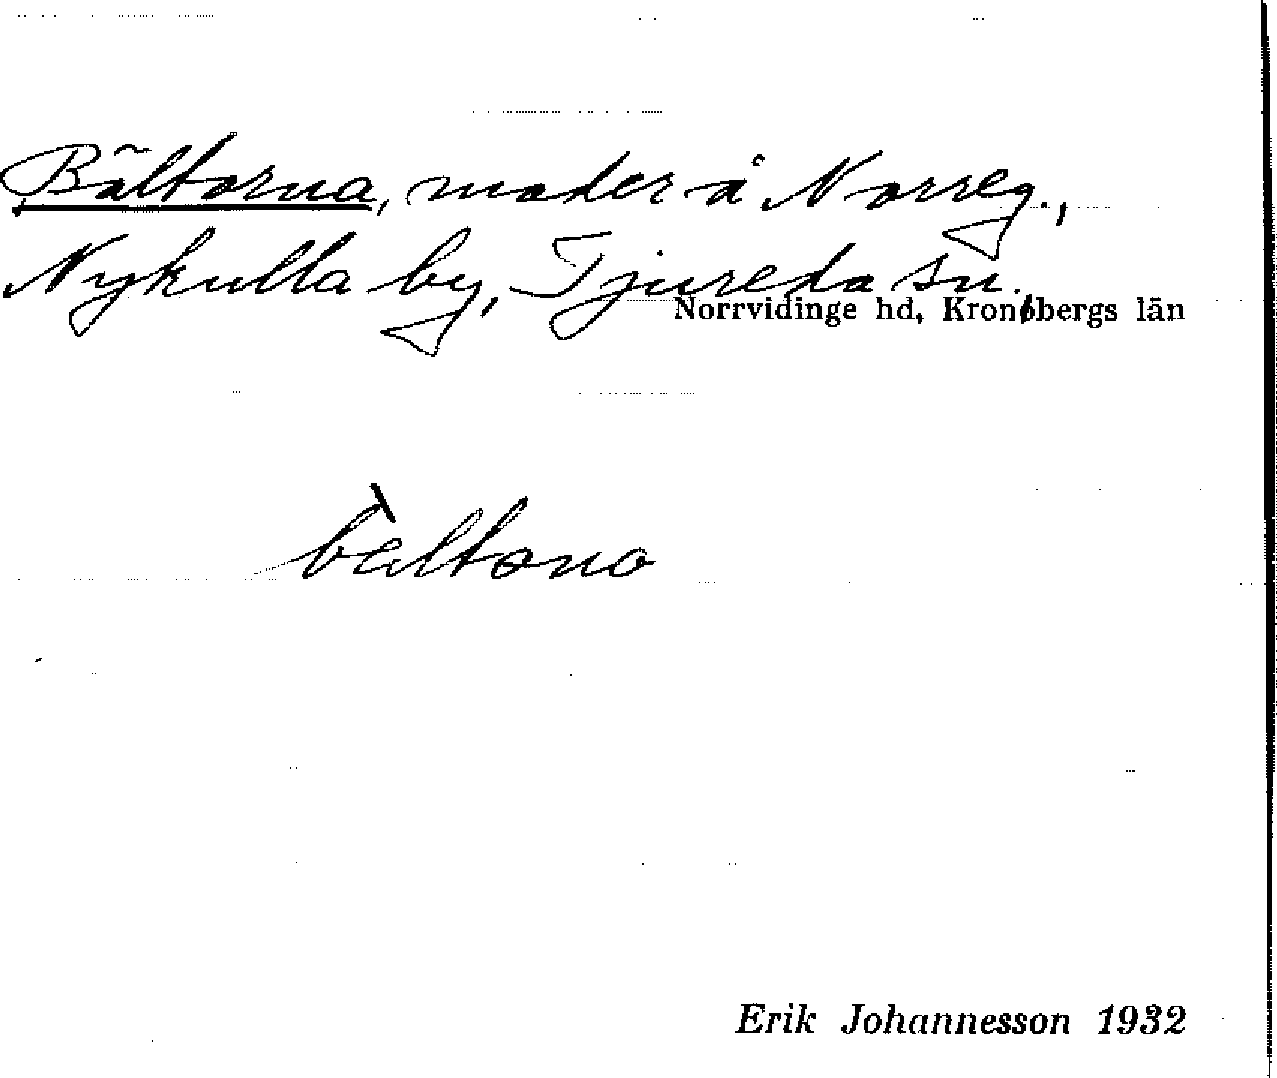 Bältorna, mader å Norreg.,
Nykulla by, Tjureda sn.
Norrvidinge hd, Kronobergs län
bàltona
Erik Johannesson 1932